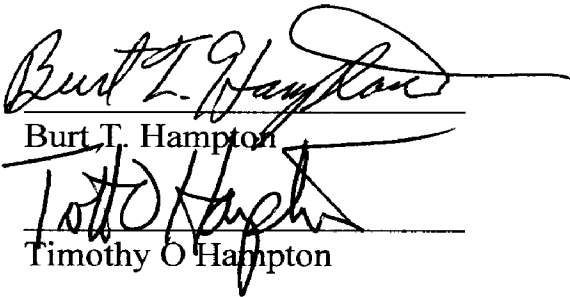 Burt T. Hampton
Burt T. Hampton
Hampton
Timothy O Hampton